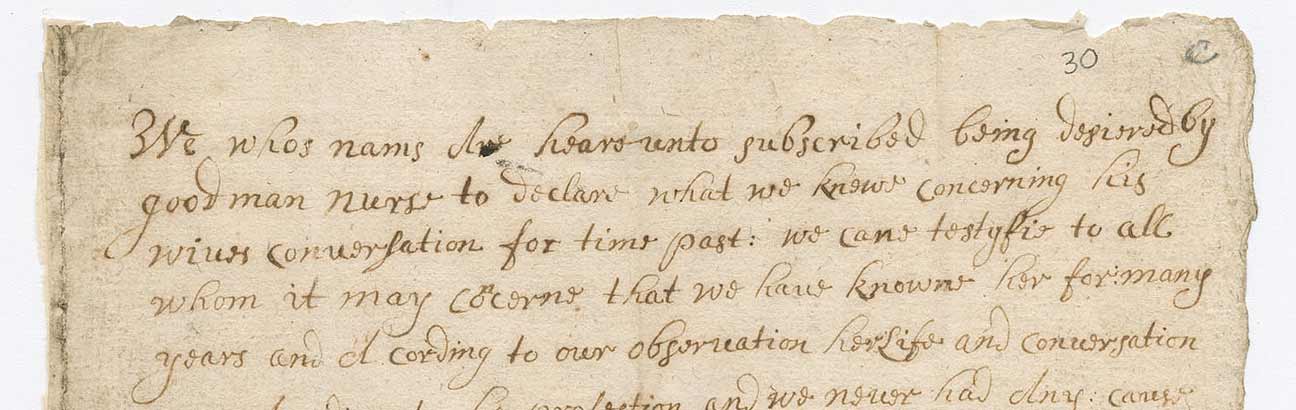 30
We whos nams Are heareunto subscribed being desiered by
goodman nurse to declare what we knewe concerning his
wives conversation for time past: we cane testyfie to all
whom it may cocerne that we have knowne her for: many
years and A cording to our observation her Life and conversation
profestion and we never had Any: cause